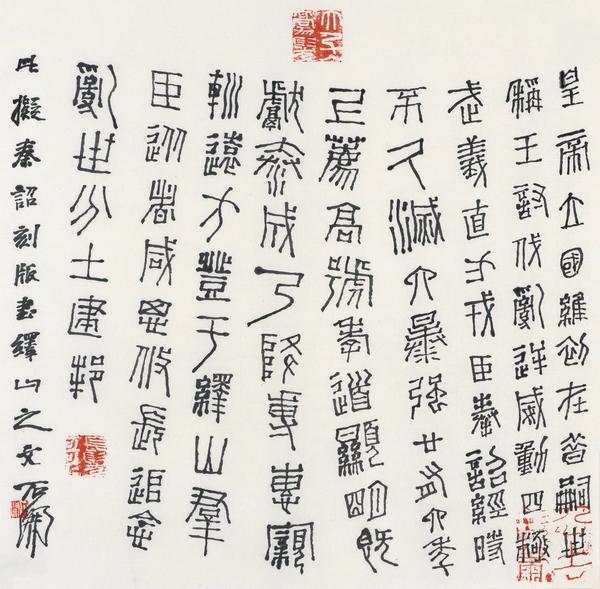 皇帝立國維初在昔嗣世
稱王討伐亂逆威動四極
武義直方戎臣奉詔經時
不久滅六暴強廿有六年
上薦高號孝道顯明既
獻泰成乃降專惠寴
𨋢遠方登于繹山羣
臣從者咸思攸長追念
亂世分土建邦
此擬秦詔刻版書繹山之文 石